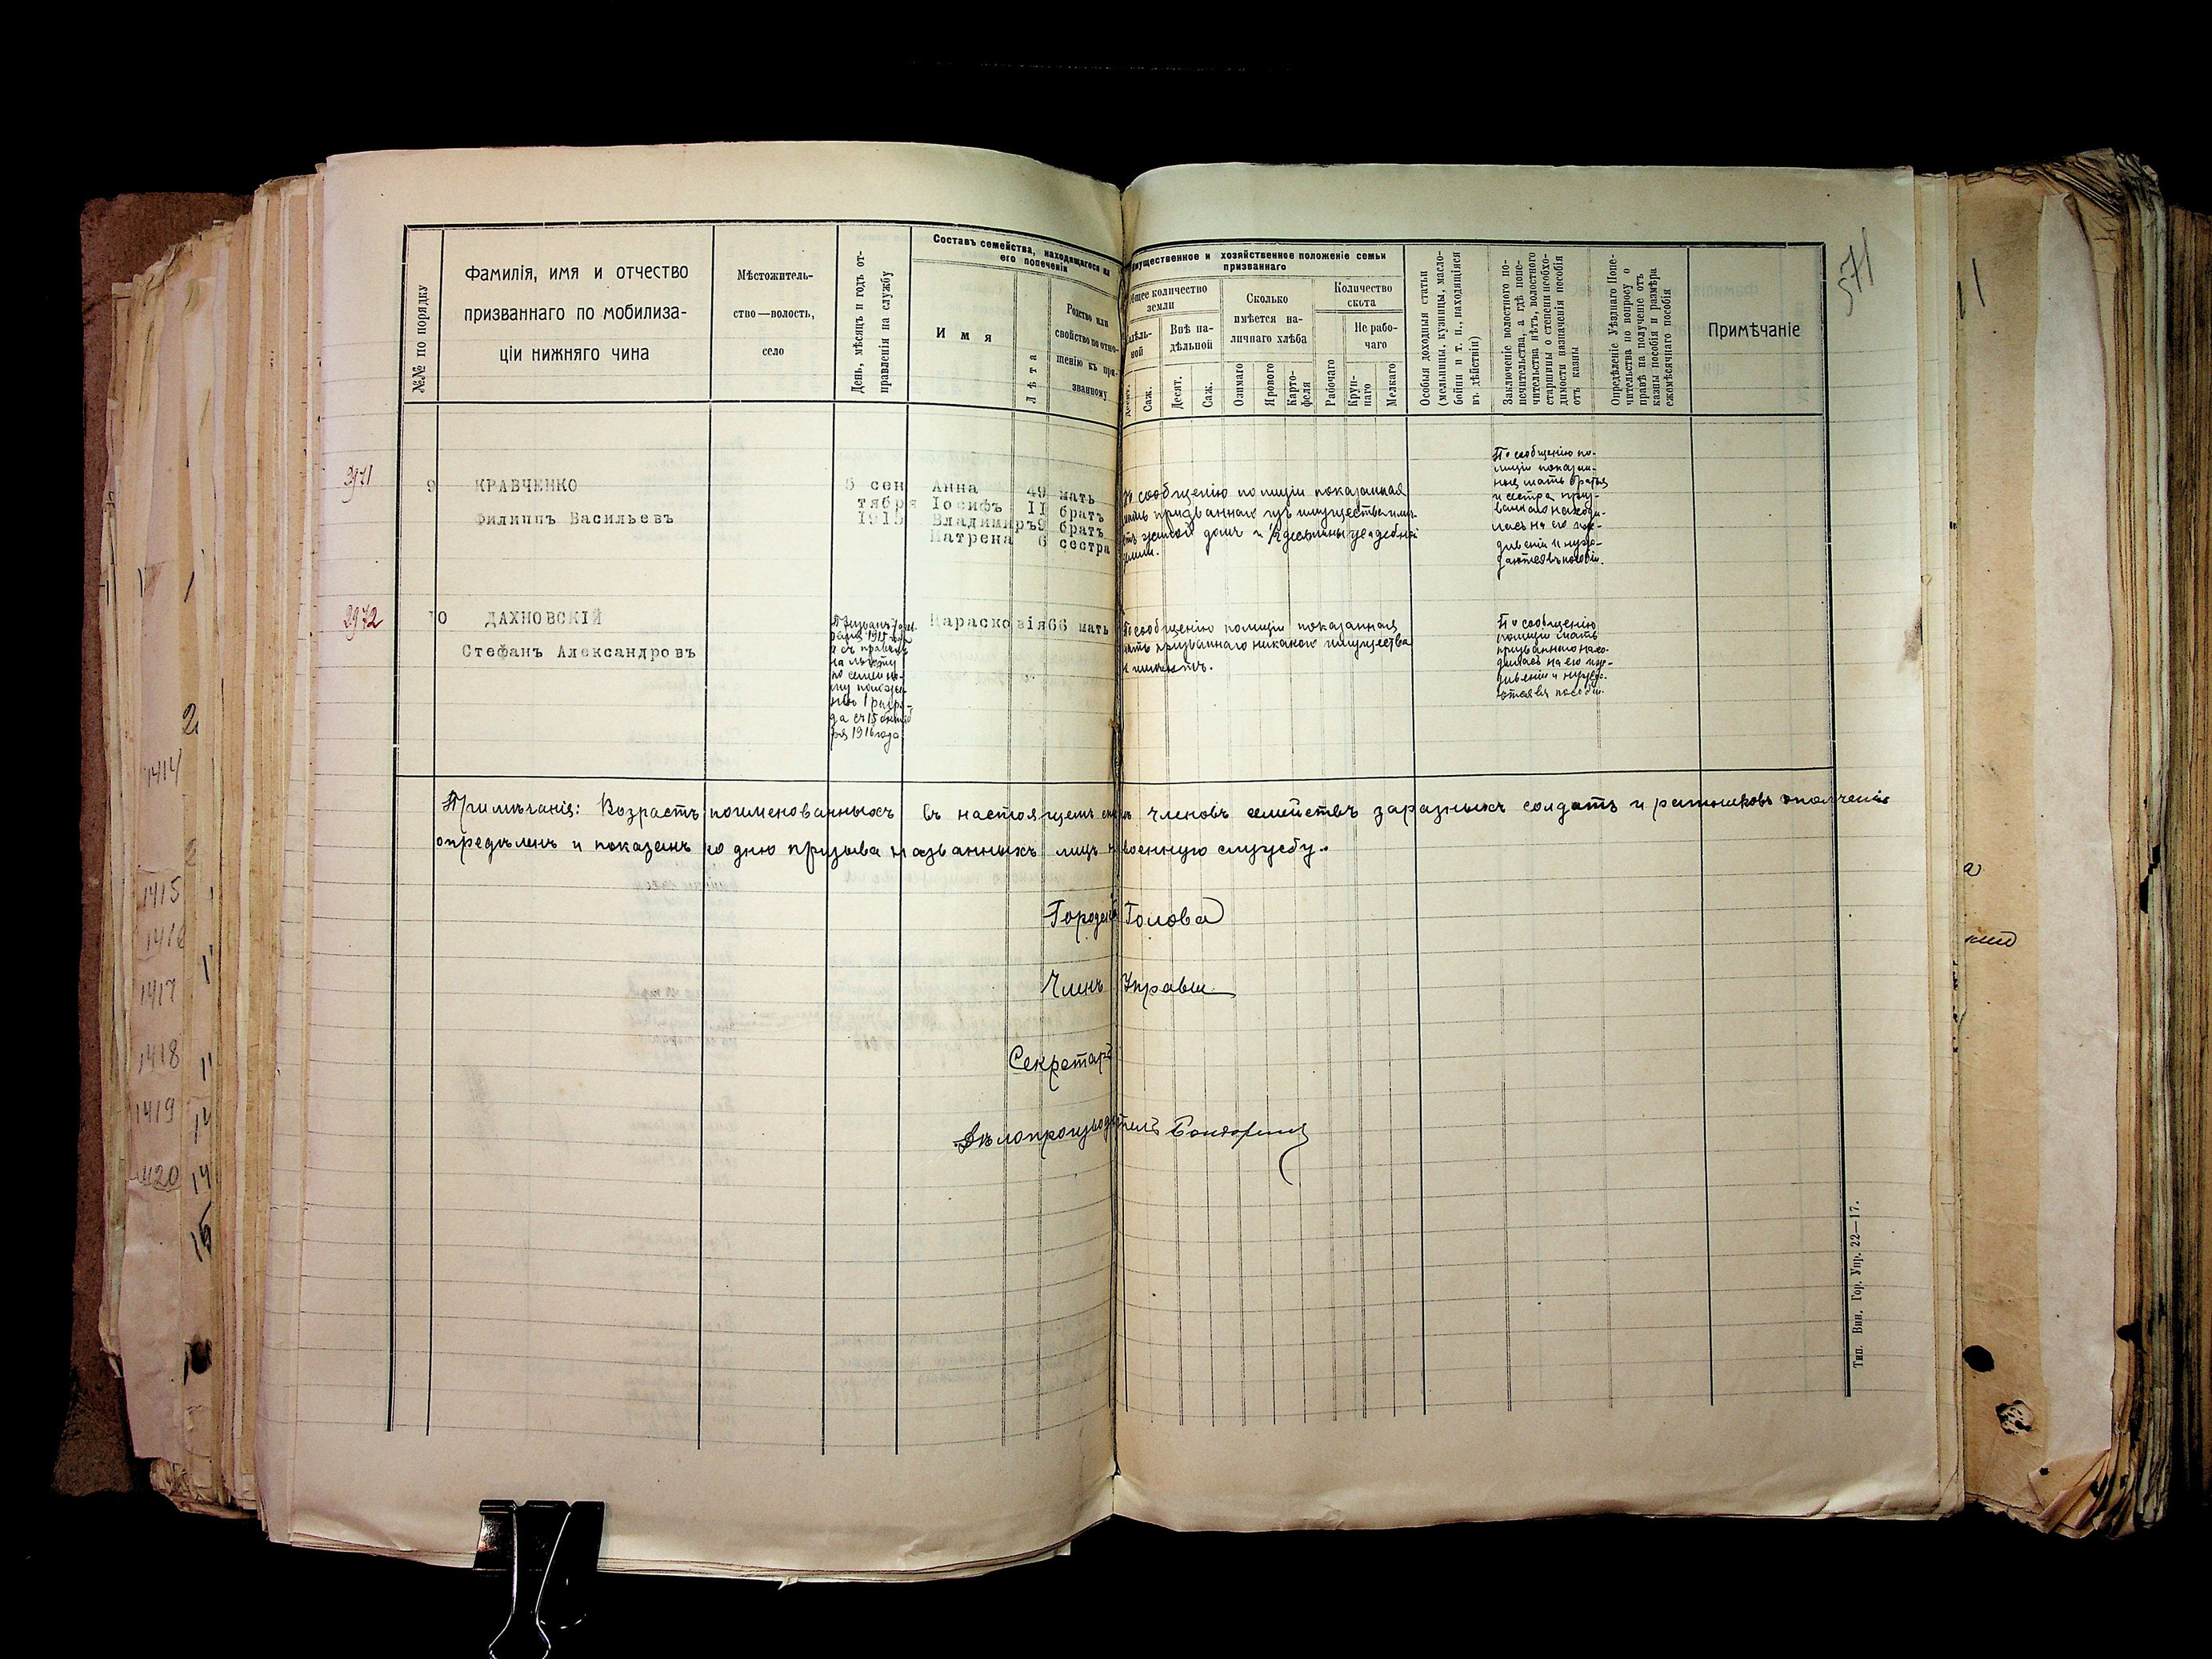 571
№№ по порядку
Фамилія, имя и отчество
призваннаго по мобилиза-
ціи нижняго чина
Мѣстожитель-
ство—волость,
село
День, мѣсяцъ и годъ от-
правленія на службу
Составъ семейства, находящагося на
его попеченіи
Имя
Лѣта
Родство или
свойство по отно-
шенію къ при-
званному
мущественное и хозяйственное положеніе семьи
призваннаго
бщее количество
земли
адѣль-
ной
Десят.
Саж.
Внѣ на-
дѣльной
Десят.
Саж.
Сколько
имѣется на-
личнаго хлѣба
Озимаго
Ярового
Карто-
феля
Количество
скота
Рабочаго
Не рабо-
чаго
Круп-
наго
Мелкаго
Особыя доходныя статьи
(мельницы, кузницы, масло-
бойни и т. п., находящіяся
въ дѣйствіи)
Заключеніе волостного по-
печительства, а гдѣ попе-
чительства нѣтъ, волостного
старшины о степени необхо-
димости назначенія пособія
отъ казны
Опредѣленіе Уѣзднаго Попе-
чительства по вопросу о
правѣ на полученіе отъ
казны пособія и размѣра
ежемѣсячнаго пособія
Примѣчаніе
2971
9
КРАВЧЕНКО
Филиппъ Васильевъ
5 сен
тября
1915
Анна 49 мать
Іосифъ 11 братъ
Владимиръ 9 братъ
Матрена 6 сестра
По сообщенію полиціи показанная
мать призваннаго изъ имущества имѣ-
етъ жилой домъ и ½ десятины усадебной
земли.
По сообщенію по-
лиціи показан-
ныя мать братья
и сестра приз-
ваннаго находи-
лась на его иж-
дивеніи и нуж-
даются въ пособіи.
2972
10
ДАХНОВСКІЙ
Стефанъ Александровъ
на льготу
по семейно-
му положе-
нію 1 разря-
да съ 15 октяб
ря 1916 года
Парасковія 66 мать
По сообщенію полиціи показанная
мать призваннаго никакого имущества
не имѣетъ.
По сообщенію
полиціи мать
призваннаго нахо-
дилась на его иж-
дивеніи и нужда-
ется въ пособіи.
Примѣчанія: Возрастъ поименованныхъ въ настоящемъ членовъ семействъ запасныхъ солдатъ и ратниковъ ополченія
опредѣленъ и показанъ ко дню призыва названныхъ лицъ на военную службу.
Городской Голова
Членъ Управы
Секретарь
Дѣлопроизводитель
Тип. Вин. Гор. Упр. 22—17.
1414
1415
1416
1417
1418
1419
1420